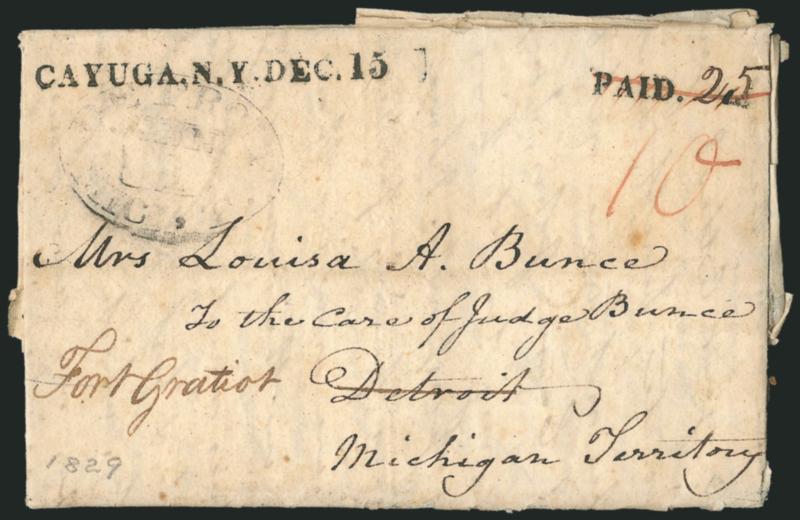 CAYUGA. N. Y. DEC. 15
PAID. 25
10
Mrs Louisa A. Bunce
To the Care of Judge Bunce
Fort Gratiot
Detroit
Michigan Territory
1829